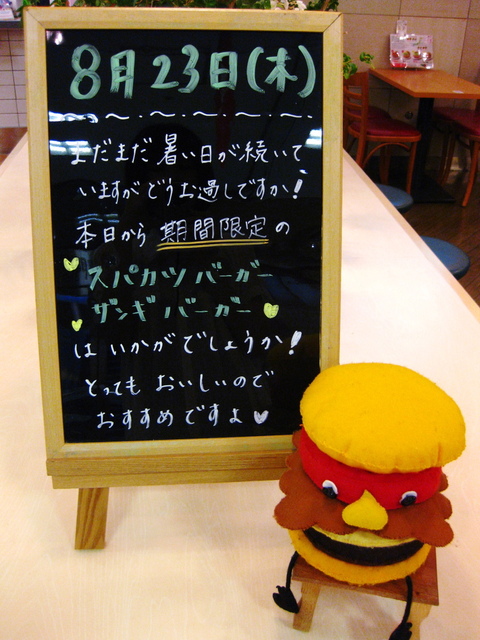 8月23日(木)
まだまだ暑い日が続いて
いますがどうお過しですか!
本日から期間限定の
スパカツバーガー
ザンギバーガー
はいかがでしょうか!
とってもおいしいので
おすすめですよ